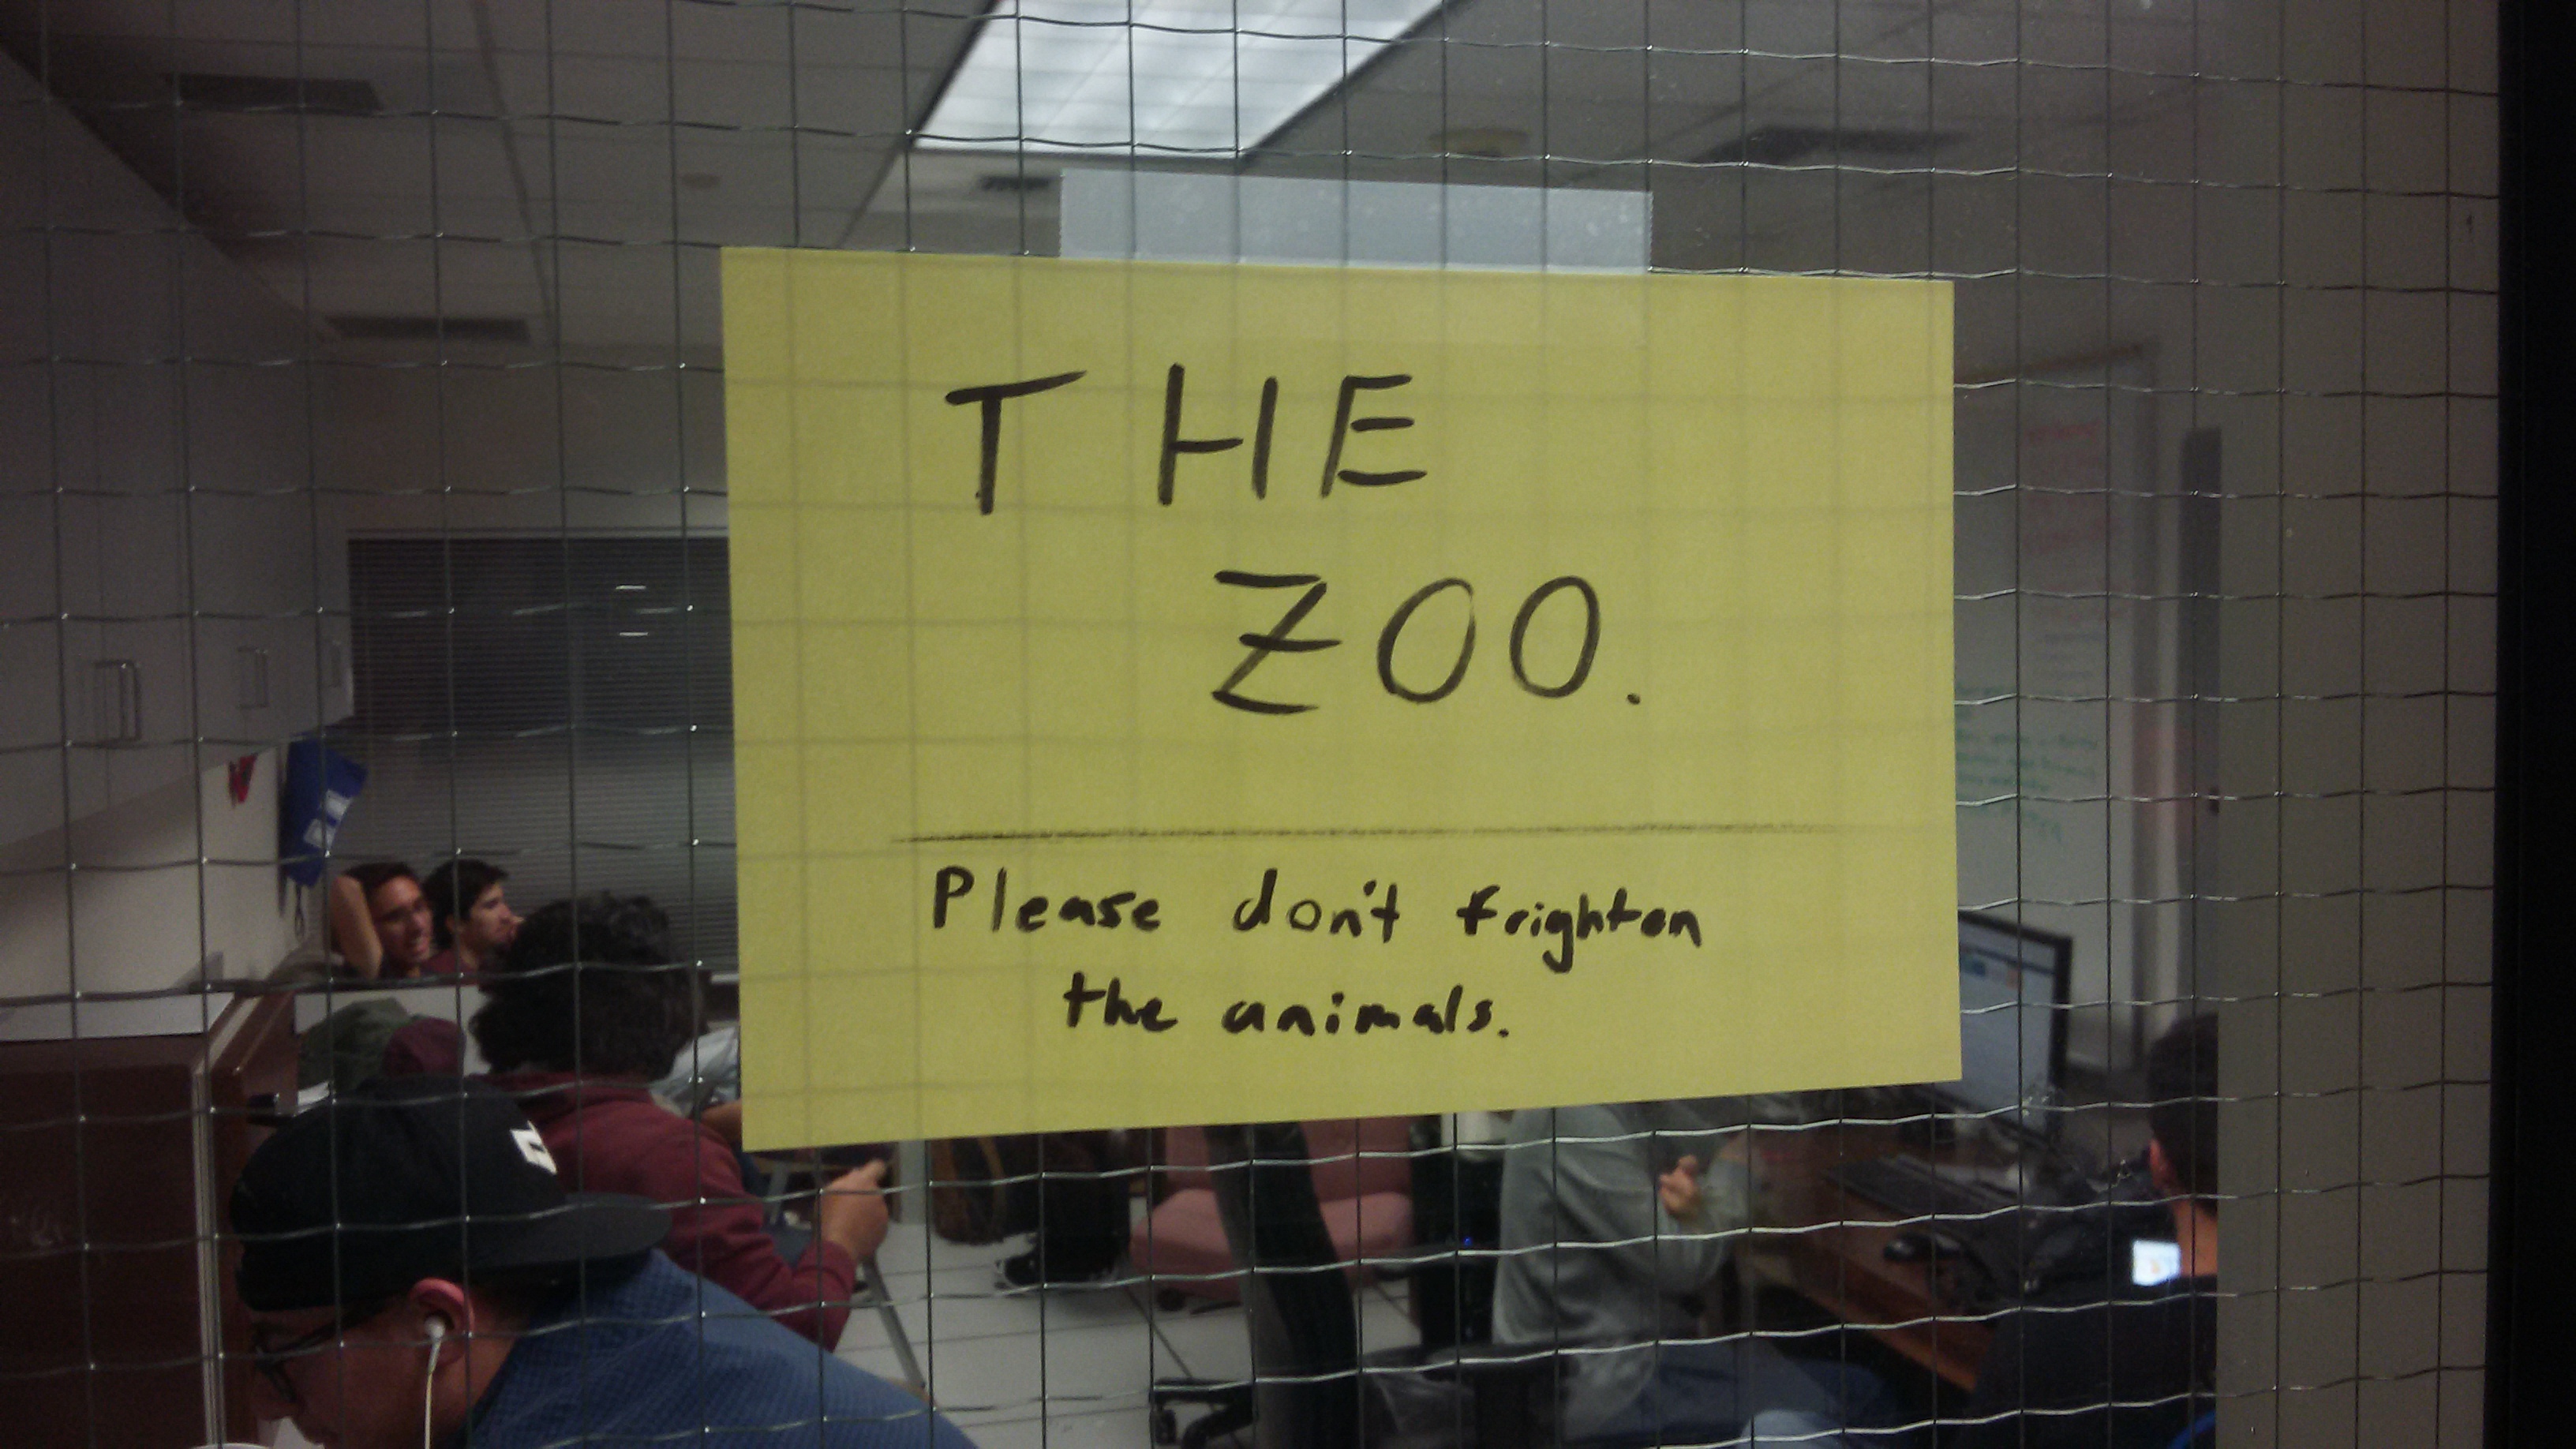 THE
ZOO.
Please don't frighten
the animals.